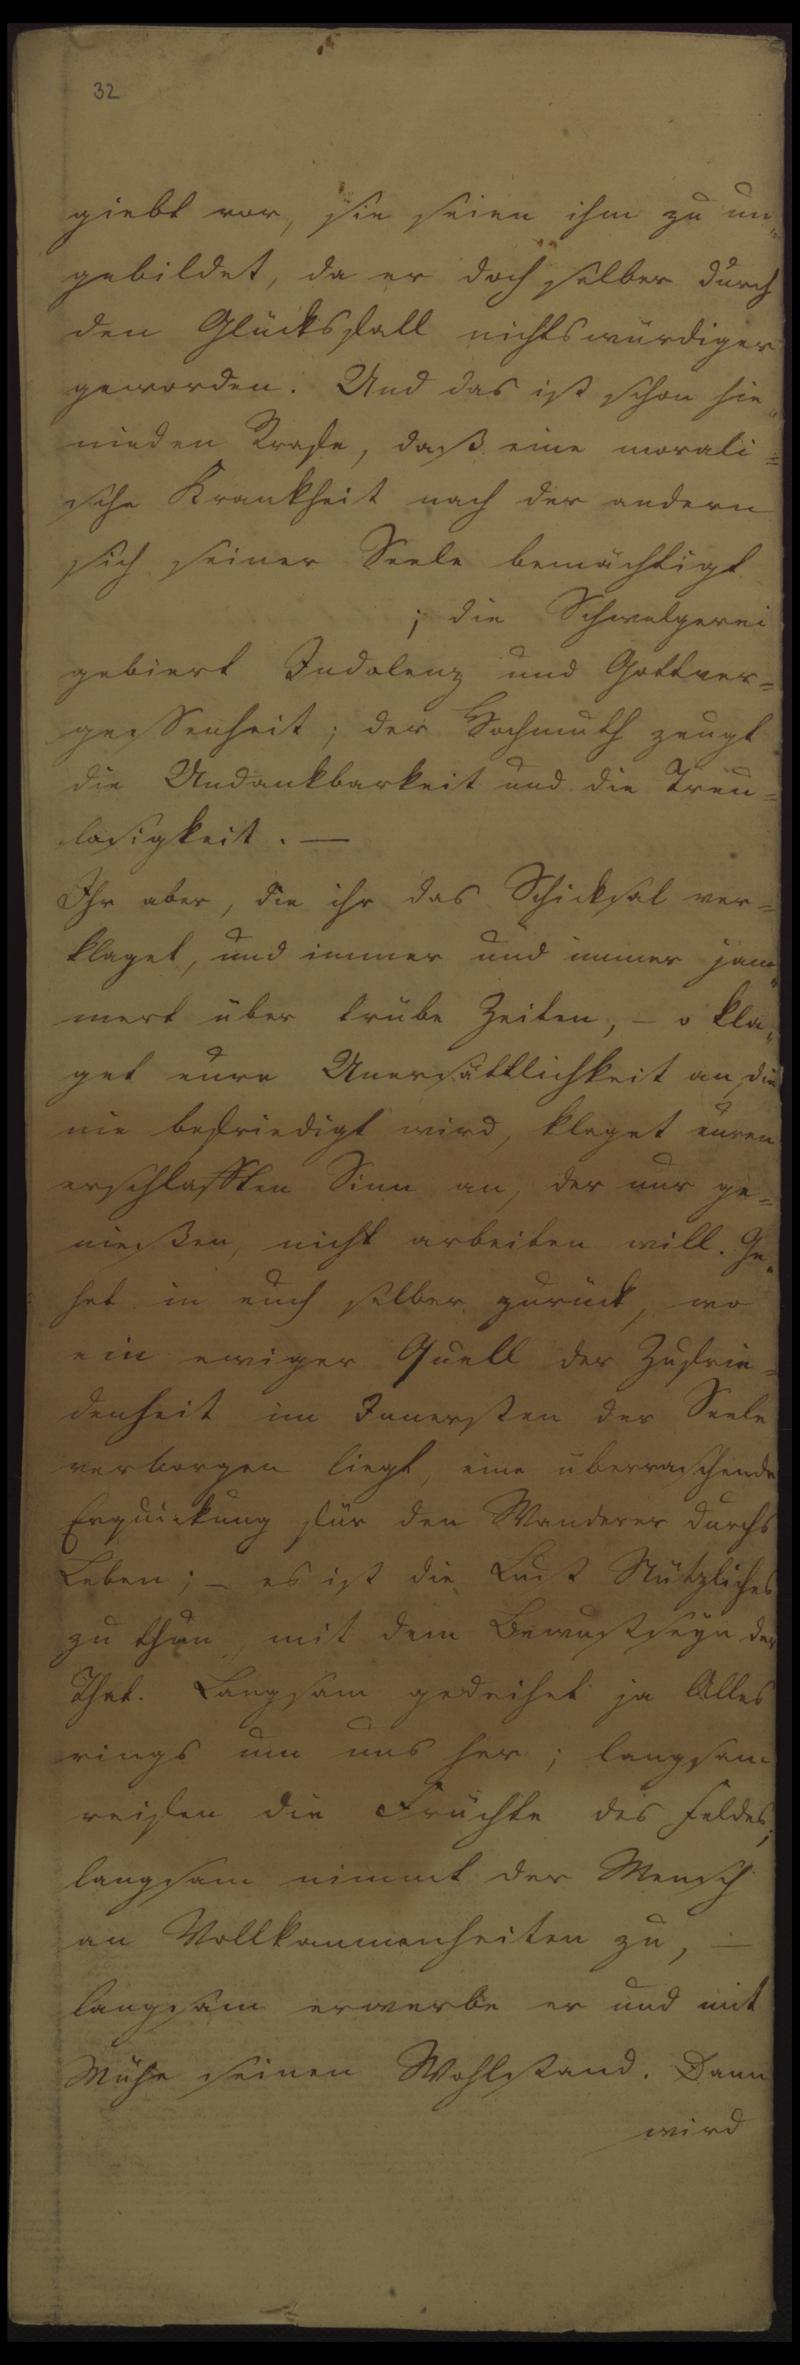 32
giebt vor, sie seien ihm zu un„
gebildet, da er doch selber durch
den Glücksfall nichtswürdiger
geworden. Und das ist schon hie„
nieden Strafe, daß eine morali=
sche Krankheit nach der andern
sich seiner Seele bemächtigt
; die Schwelgerei
gebiert Indolenz und Gottver=
gessenheit; der Hochmuth zeugt
die Undankbarkeit und die Treu=
losigkeit. —
Ihr aber, die ihr das Schicksal ver=
klaget, und immer und immer jam„
mert über trübe Zeiten, – o kla„
get eure Unersättlichkeit an, die
nie befriedigt wird, klaget euren
erschlafften Sinn an, der nur ge=
nießen, nicht arbeiten will. Ge„
het in euch selber zurück, wo
ein ewiger Quell der Zufrie=
denheit im Innersten der Seele
verborgen liegt, eine überraschende
Erquickung für den Wanderer durchs
Leben; – es ist die Lust Nützliches
zu thun, mit dem Bewustseyn der
That. Langsam gedeihet ja Alles
rings um uns her; langsam
reifen die Früchte des Feldes;
langsam nimmt der Mensch
an Vollkommenheiten zu, —
langsam erwerbe er und mit
Mühe seinen Wohlstand. Dann
wird